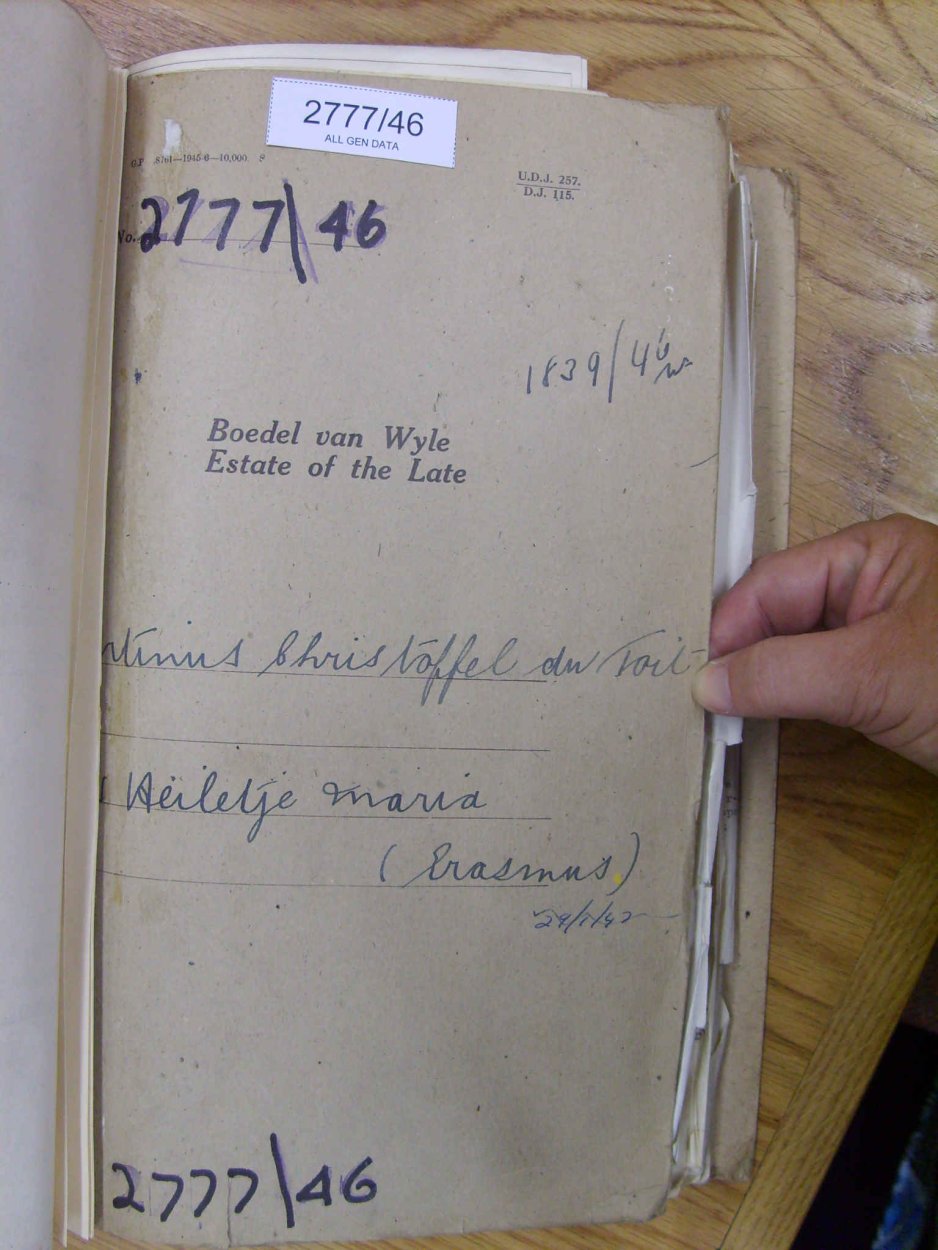 2777/46
ALL GEN DATA
G.P. 8761—1945-6—10,000. S
U.D.J. 257.
D.J. 115.
No. 2777\46
1839/46
Boedel van Wyle
Estate of the Late
rtinus Christoffel du Toit
Heiletje Maria
(Erasmus)
2777\46